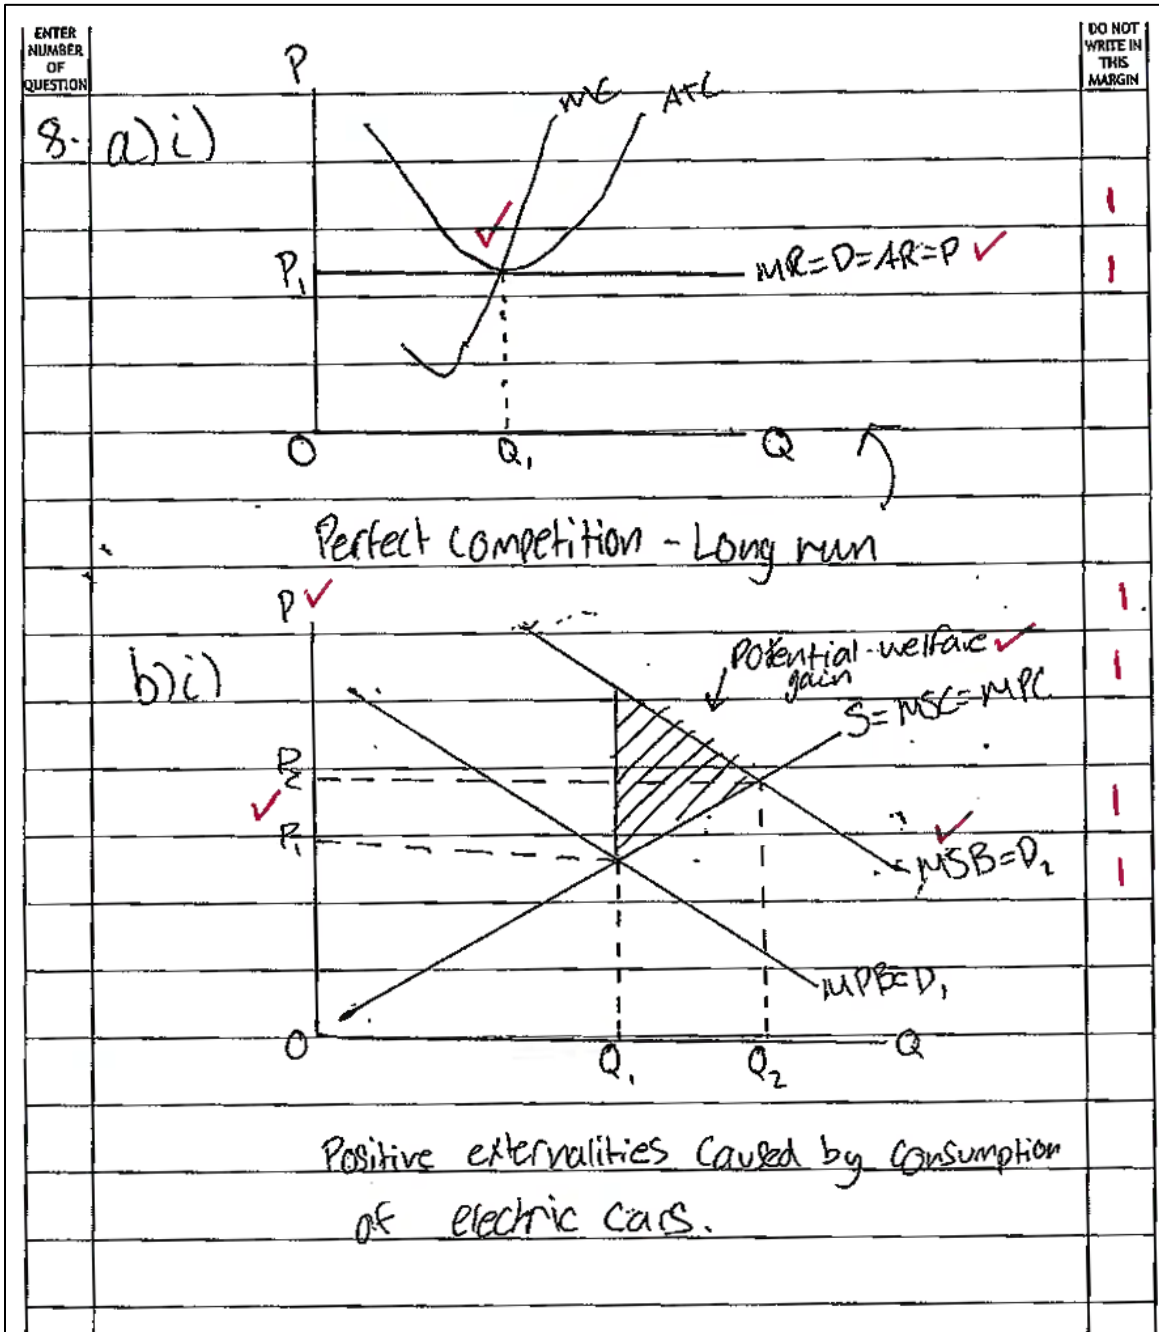 ENTER
NUMBER
OF
QUESTION
DO NOT
WRITE IN
THIS
MARGIN
8. a) i)
P
MC
ATC
1
P₁
MR=D=AR=P ✓
1
O
Q₁
Q
Perfect competition - Long run
P ✓
1
b) i)
Potential welfare ✓
gain
1
S=MSC=MPC
P₂
✓
1
P₁
MSB=D₂
1
MPB=D₁
O
Q₁
Q₂
Q
Positive externalities caused by consumption
of electric cars.